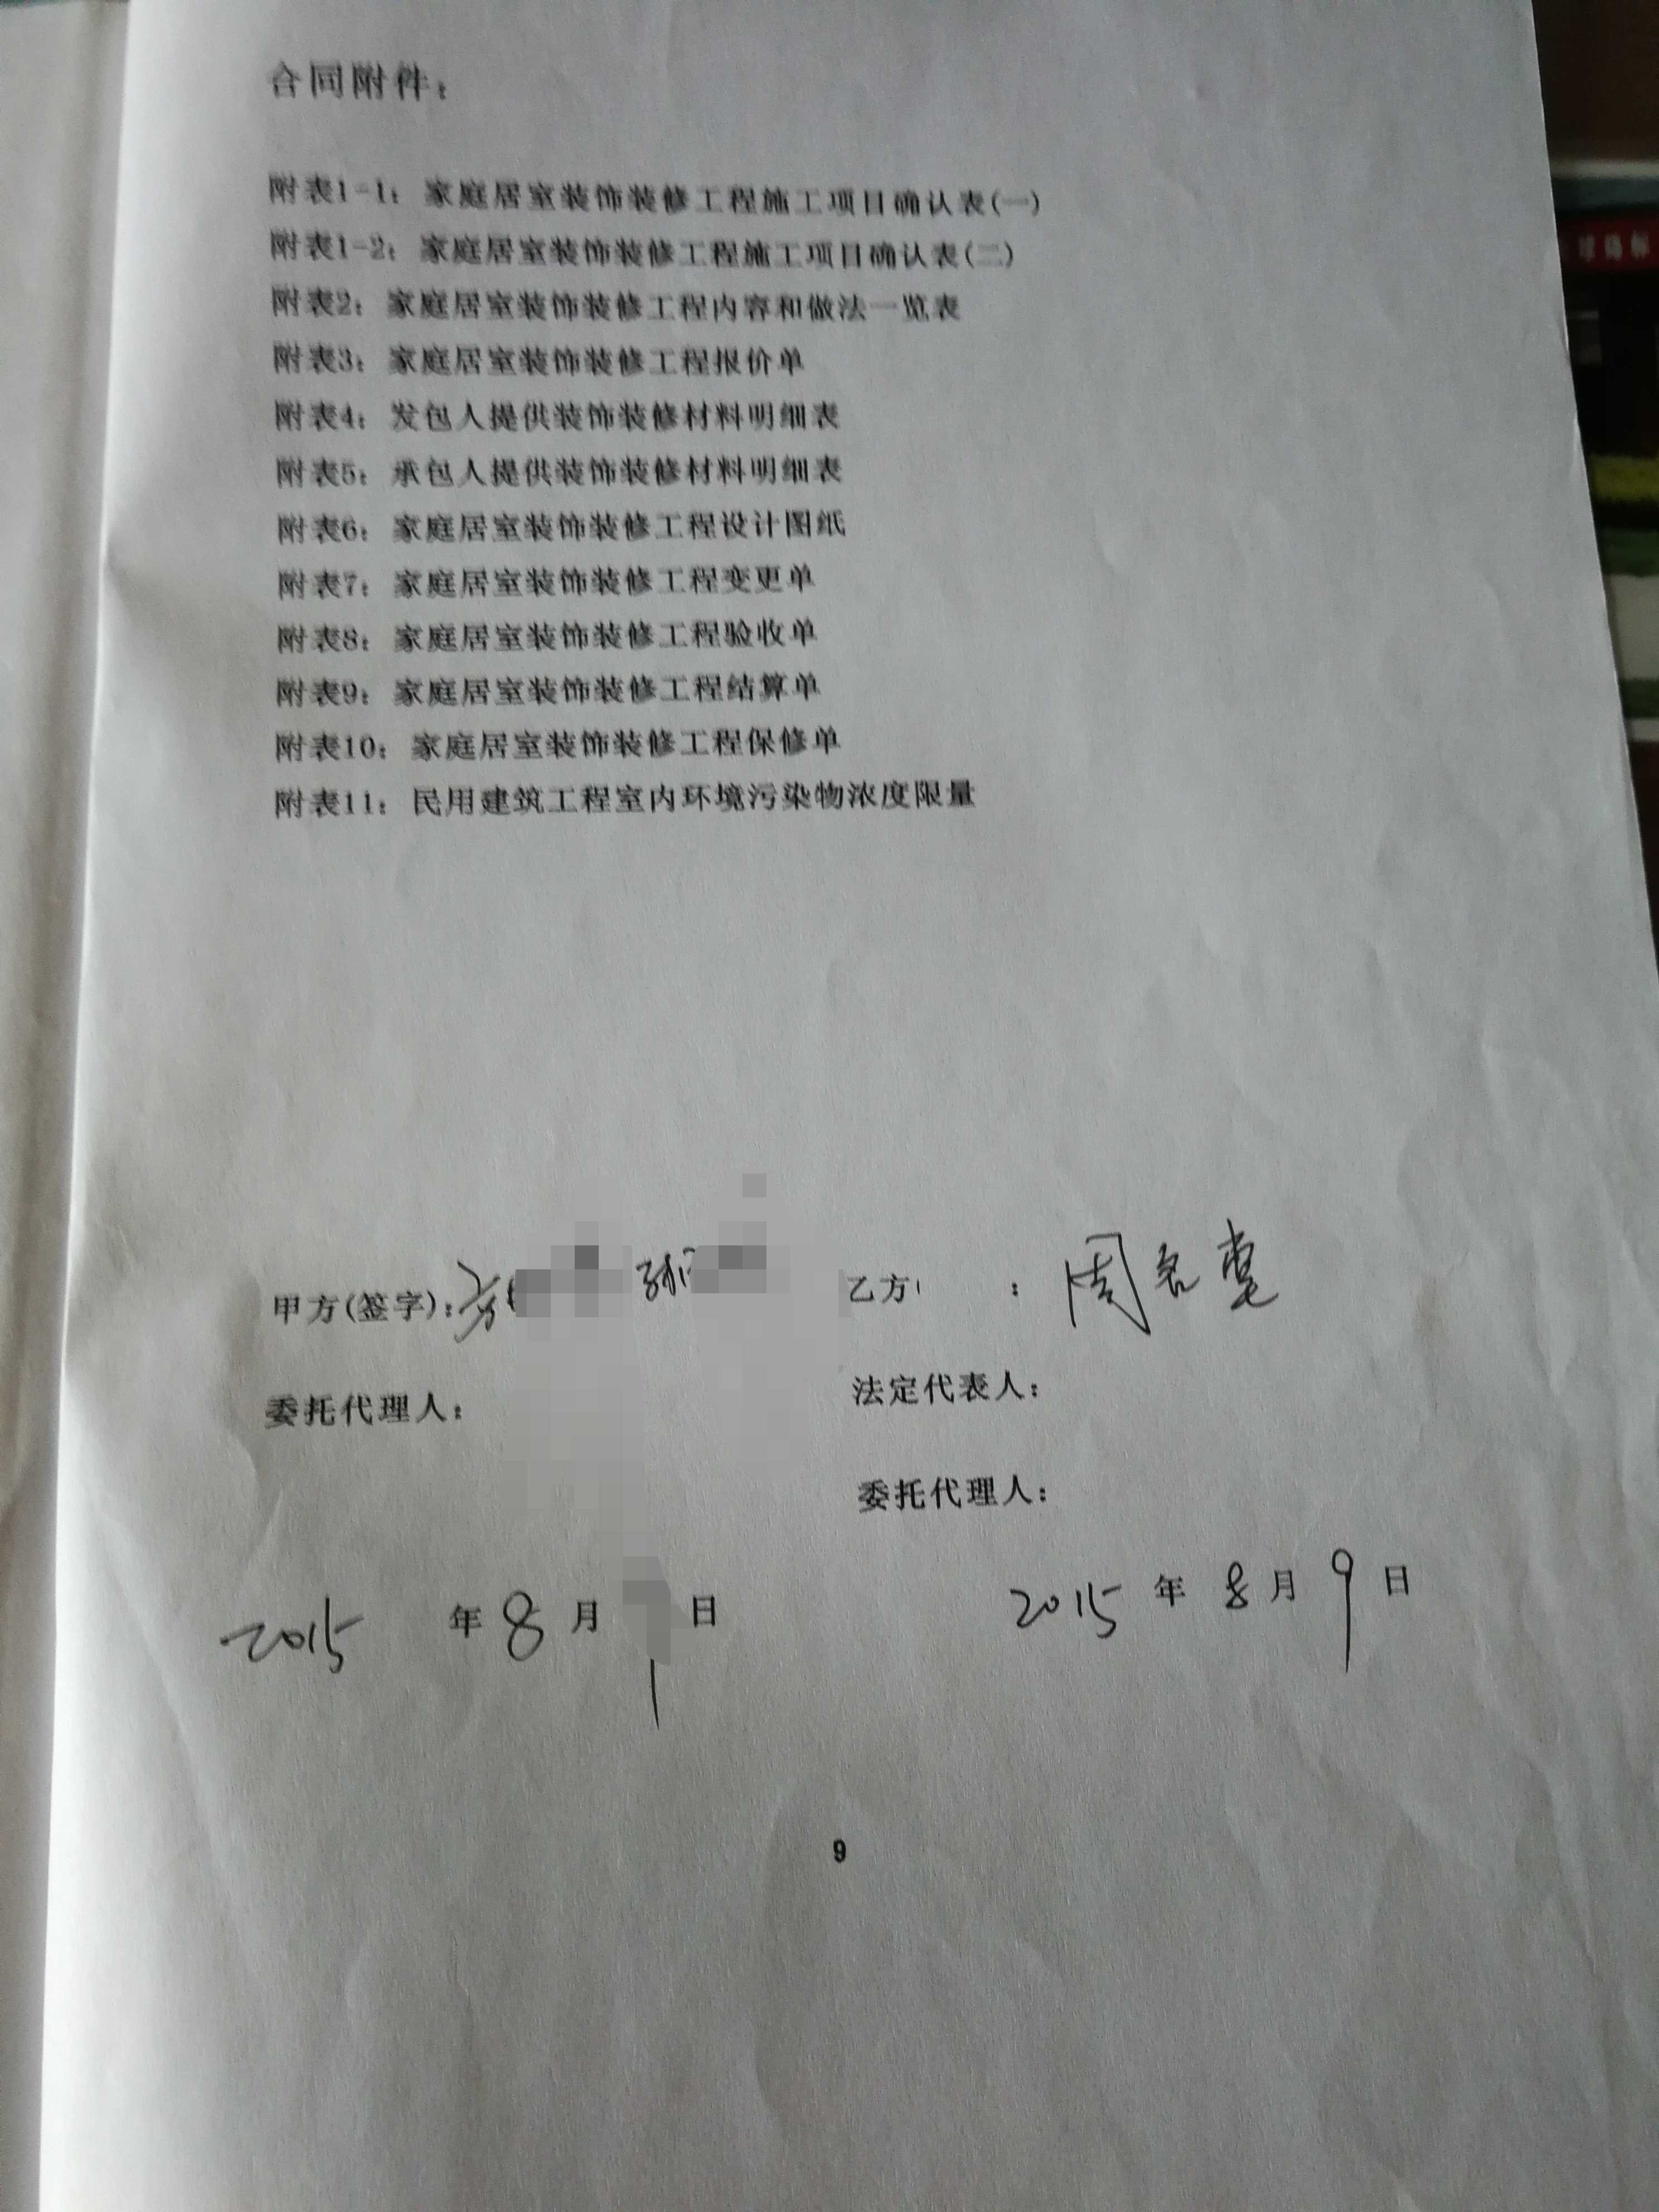 合同附件：
附表1-1：家庭居室装饰装修工程施工项目确认表(一)
附表1-2：家庭居室装饰装修工程施工项目确认表(二)
附表2：家庭居室装饰装修工程内容和做法一览表
附表3：家庭居室装饰装修工程报价单
附表4：发包人提供装饰装修材料明细表
附表5：承包人提供装饰装修材料明细表
附表6：家庭居室装饰装修工程设计图纸
附表7：家庭居室装饰装修工程变更单
附表8：家庭居室装饰装修工程验收单
附表9：家庭居室装饰装修工程结算单
附表10：家庭居室装饰装修工程保修单
附表11：民用建筑工程室内环境污染物浓度限量
甲方(签字)： 乙方 ：周
委托代理人： 法定代表人：
委托代理人：
2015 年 8 月 日 2015 年 8 月 9 日
9